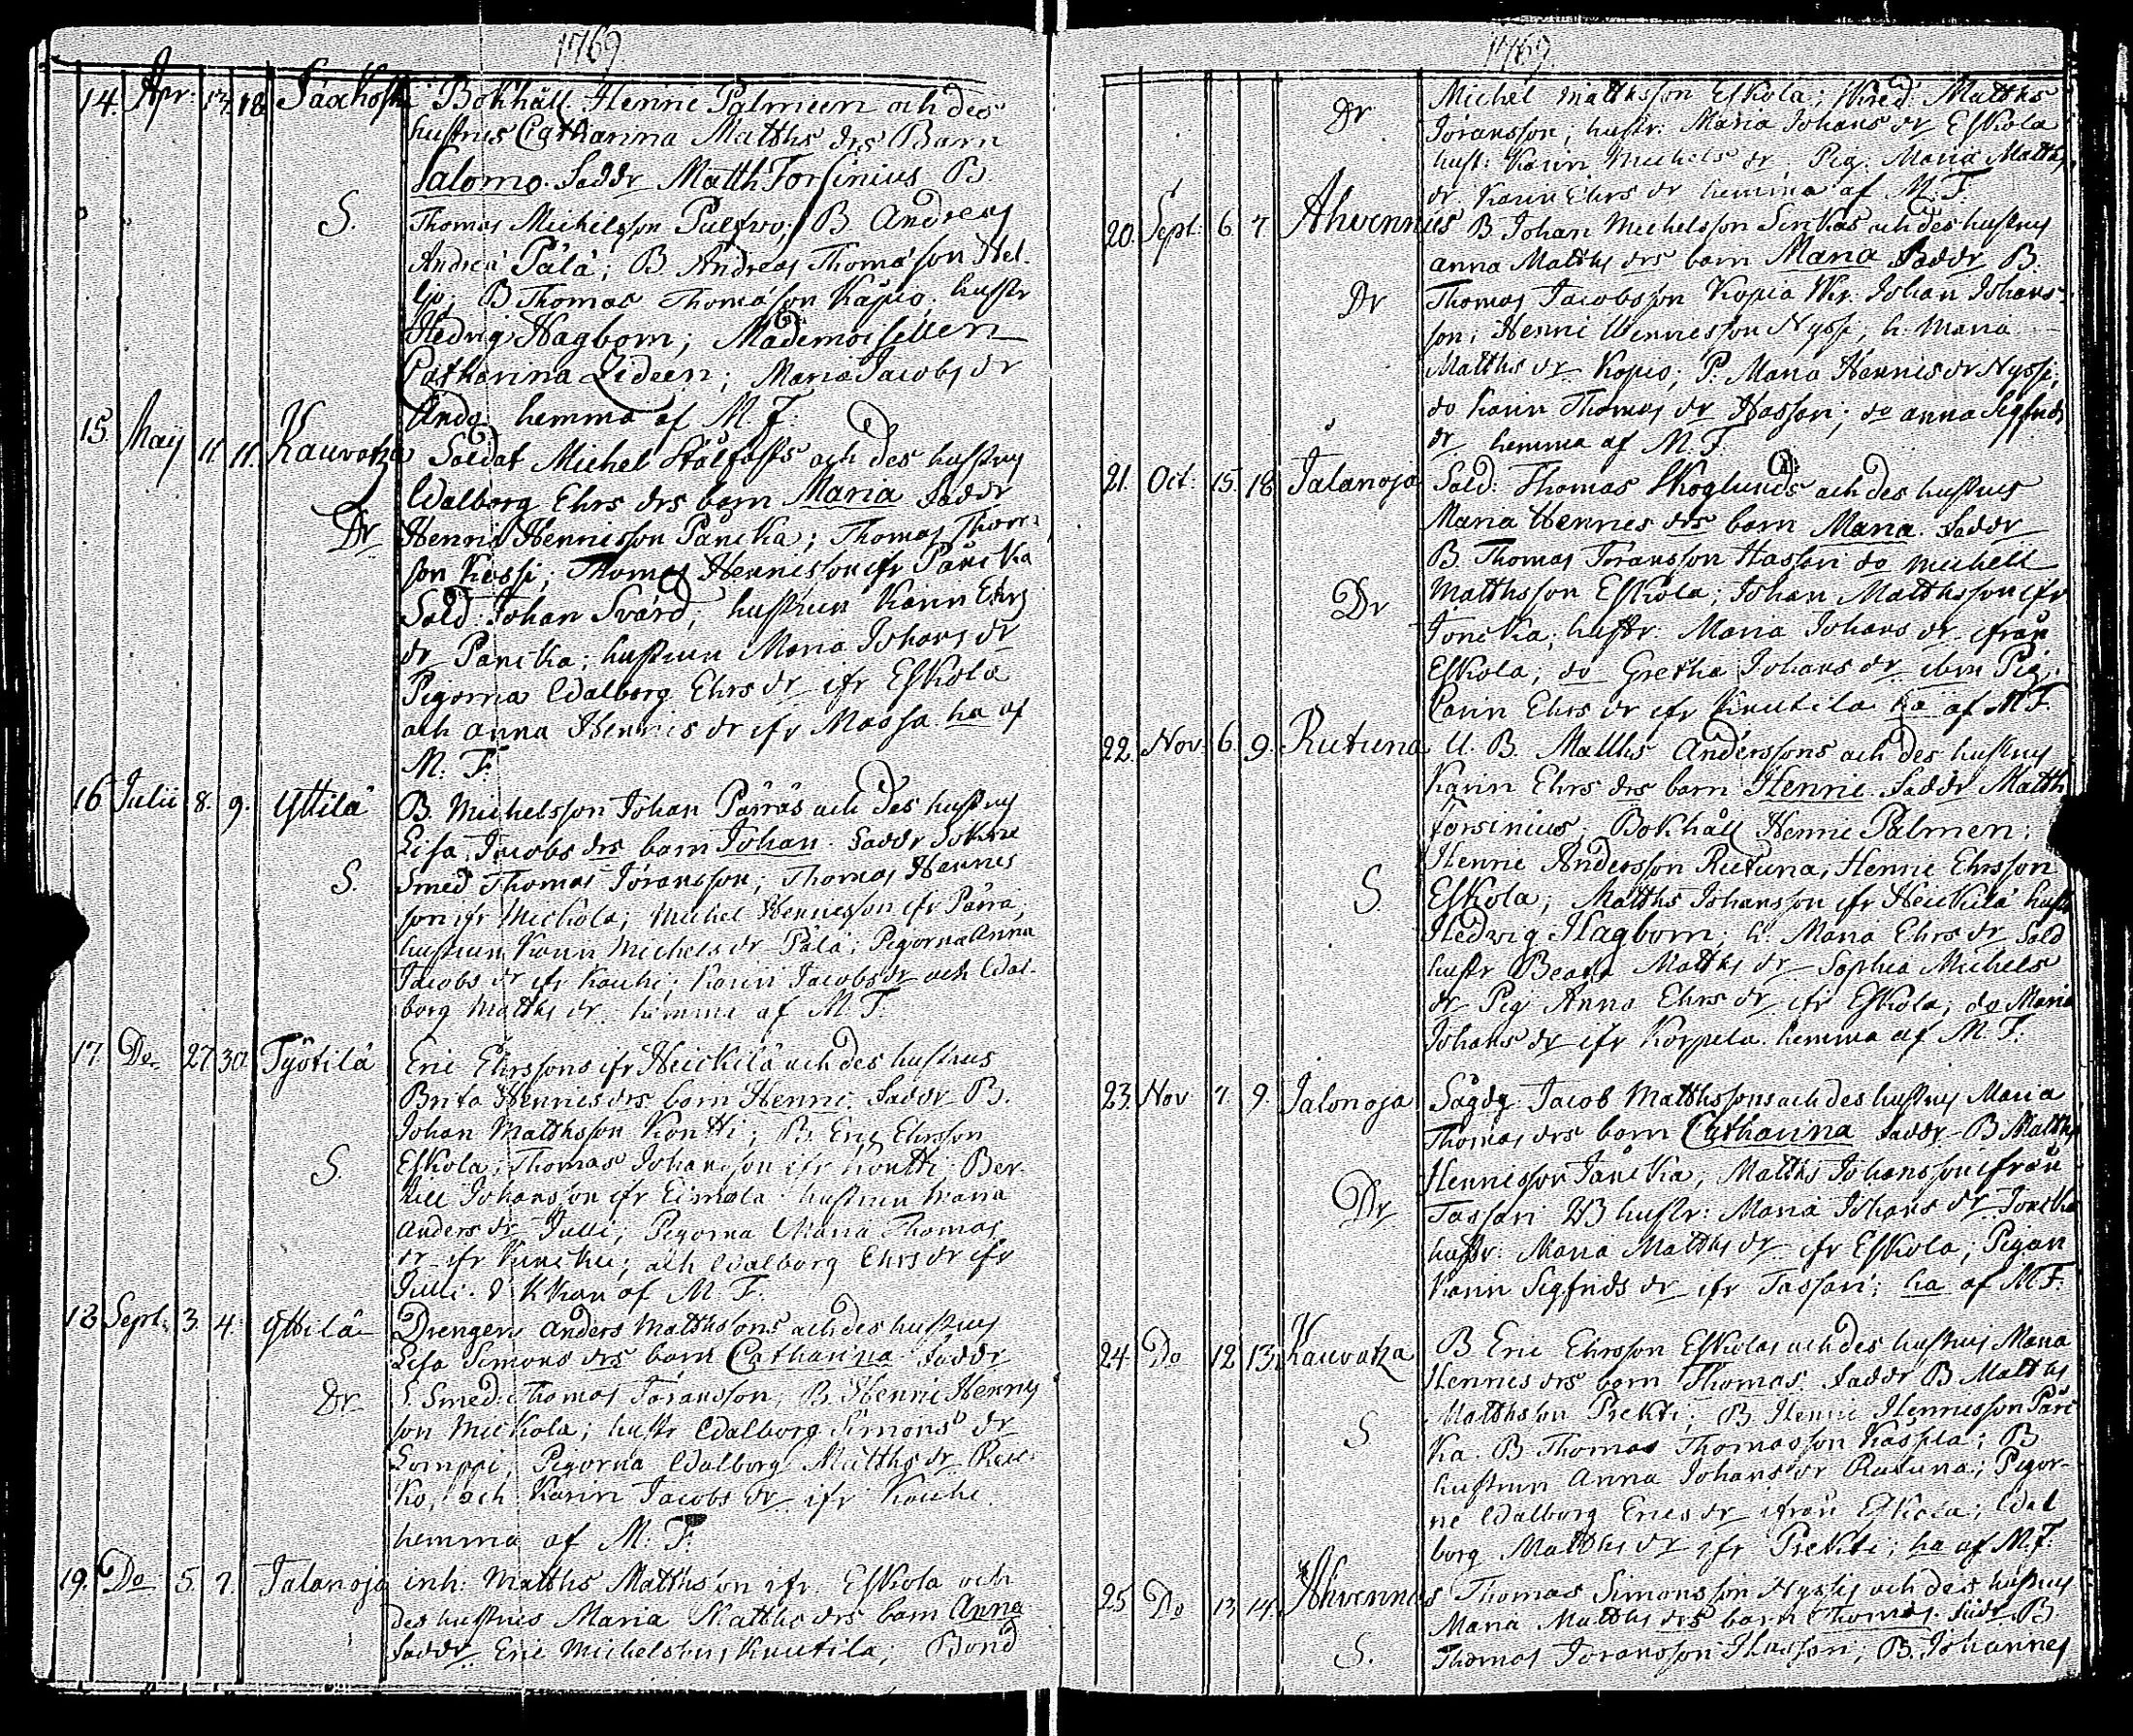 1769
14. Apr: 17. 18 Säxkoski Bokhåll Henric Palmien och des
hustrus Catharina Matths drs Barn
Salomo. Faddr Matth Forsinius B
S. Thomas Michelsson B Andreas
Andreæ Pälä; B Andreas Thomasson Hel-
jo; B Thomas Thomasson Käpio. hustr
Hedvig Hagborn; Mademoisellen
Catharina Lideen; Maria Jacobs dr
hemma af M. F.
15. Maij 11. 11. Kauvatza Soldat Michel Stålfasts och des hustrus
Walborg Ehrs drs barn Maria Faddr
Dr Henric Henricsson Päneka; Thomas Thom
son Kessi; Thomas Henricsson ifr Päneka
Sold: Johan Svärd; hustrun Karin Ehrs
dr Paneka; hustrun Maria Johans dr
Pigorna Walborg Ehrs dr ifr Eskola
och anna Henrics dr ifr Massa ha af
M. F.
16 Julii 8. 9. Yttilä B. Michelsson Johan Pärräs och des hustrus
Lisa Jacobs drs barn Johan. Faddr Sokne
S. Smed Thomas Jöransson; Thomas Henrics
son ifr Mickola; Michel Henricsson ifr Pärrä;
hustrun Karin Michels dr Pälä; Pigorna Anna
Jacobs dr ifr Kauhi; Karin Jacobs dr och Wal-
borg Matths dr hemma af M. F.
17. Do. 27. 30. Työtilä Eric Ehrssons ifr Heickilä och des hustrus
Brita Henrics drs barn Henric. Faddr B.
Johan Matthsson Kontti; B. Eric Ehrsson
S. Eskola; Thomas Johansson ifr Kontti Ber-
till Johansson ifr Eimola hustrun Maria
Anders dr Julli; Pigorna Maria Thomas
dr ifr och Walborg Ehrs dr ifr
Julli. af M. F.
18 Sept. 3. 4. Yttilä Drengen Anders Matthssons och des hustrus
Lisa Simons drs barn Catharina Faddr
Dr S. Smed: Thomas Jöransson; B. Henric Henrics
son Mickola; hustr Walborg Simons dr
Lomppi; Pigorna Walborg Matths dr
Ko, och Karin Jacobs dr ifr Kauhi
hemma af M. F.
19. Do 5. 7. Jalanoja inh: Matths Matthsson ifr. Eskola och
des hustrus Maria Matths drs barn Anna
Faddr Eric Michelssons Knutila; Bond
1769
Dr Michel Matthsson Eskola; Matths
Jöransson; hustr: Maria Johans dr Eskola
hust: Karin Michels dr Pig. Maria Matths
dr. Karin Ehrs dr hemma af M. F.
20. Sept. 6. 7 Ahvennus B Johan Michelsson Serckas och des hustrus
anna Matths drs barn Maria Faddr B.
Dr Thomas Jacobsson Kopio Johan Johans-
son; Henric Henricsson Nyssi; h. Maria
Matths dr Kopio; P. Maria Henrics dr Nyssi;
do Karin Thomas dr Hassari; do anna Sigfrids
dr hemma af M. F.
21. Oct: 15. 18 Jalanoja Sold: Thomas Skoglunds och des hustrus
Maria Hennes drs barn Maria. Faddr
B. Thomas Jöransson Hassari do Michell
Dr Matthsson Eskola; Johan Matthsson ifr
Joneka; hustr: Maria Johans dr ifrån
Eskola; do Gretha Johans dr ibm Pig.
Carin Ehrs dr ifr Knutila ha af M F.
22. Nov. 6. 9. Rutuna U. B. Matths Anderssons och des hustrus
Karin Ehrs drs barn Henric. Faddr Matth
Forsinius; Bokhåll Henric Palmen;
Henric Andersson Rutuna, Henric Ehrsson
S. Eskola; Matths Johansson ifr Heickilä hust
Hedvig Hagborn; h. Maria Ehrs dr Sold
hustr Beata Matths dr Sophia Michels
dr Pig Anna Ehrs dr ifr Eskola; do Maria
Johans dr ifr Korpela hemma af M. F.
23. Nov 7. 9. Jalonoja Jacob Matthssons och des hustrus Maria
Thomas drs barn Catharina Faddr B Matths
Henricsson Janeka; Matths Johansson ifrån
Dr Tassari B hustr: Maria Johans dr Joneka
hustr: Maria Matths dr ifr Eskola; Pigan
Karin Sigfrids dr ifr Tassari; ha af M F.
24 Do 12 13. Kauvatza B Eric Ehrsson Eskolas och des hustrus Maria
Hennes drs barn Thomas. Faddr B Matths
S Matthsson Prekti; B Henric Henricsson Päne
ka. B Thomas Thomasson Käspila; B
hustrun Anna Johans dr Rutuna; Pigor-
ne Walborg Erics dr ifrån Eskola; Wal
borg Matths dr ifr Prekti; ha af M. F.
25 Do 13 14. Ahvennus Thomas Simonsson Nyssis och des hustrus
Maria Matths drs barn Thomas. Faddr B
S. Thomas Joransson Hassari; B. Johannes